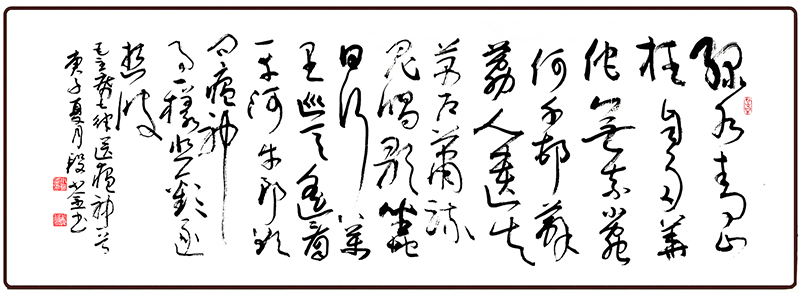 绿水青山
枉自多華
佗無奈小蟲
何千邨薜
荔人遺矢
萬戶蕭疏
鬼唱歌坐地
日行八萬
里巡天遥看
一千河牛郎欲
问瘟神
事一樣悲歡逐
逝波
毛主席七律送瘟神一首
庚子夏月段金书